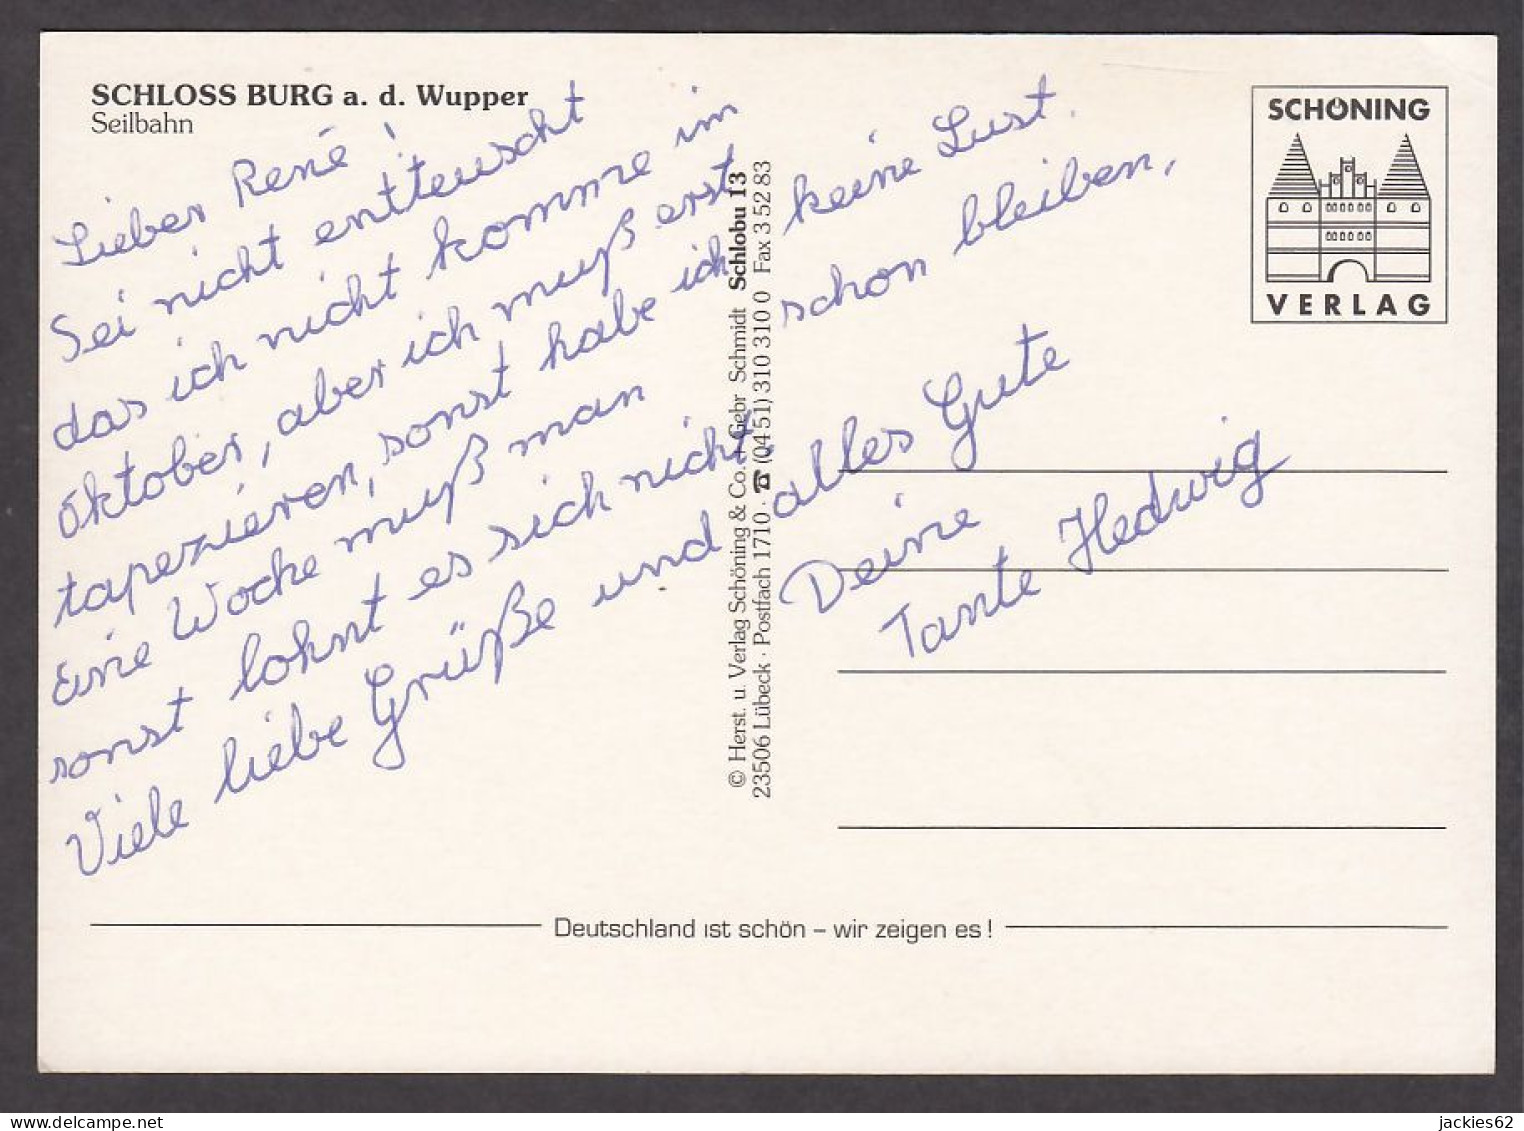 SCHLOSS BURG a. d. Wupper
Seilbahn
SCHÖNING
VERLAG
Lieber René!
Sei nicht entteuscht
das ich nicht komme im
Oktober, aber ich muß erst
tapezieren, sonst habe ich keine Lust.
Eine Woche muß man schon bleiben,
sonst lohnt es sich nicht.
Viele liebe Grüße und alles Gute
Deine
Tante Hedwig
© Herst. u. Verlag Schöning & Co. + Gebr. Schmidt Schlobu 13
23506 Lübeck · Postfach 1710 · ☎ (04 51) 310 310 0 Fax 3 52 83
Deutschland ist schön – wir zeigen es!
jackies62